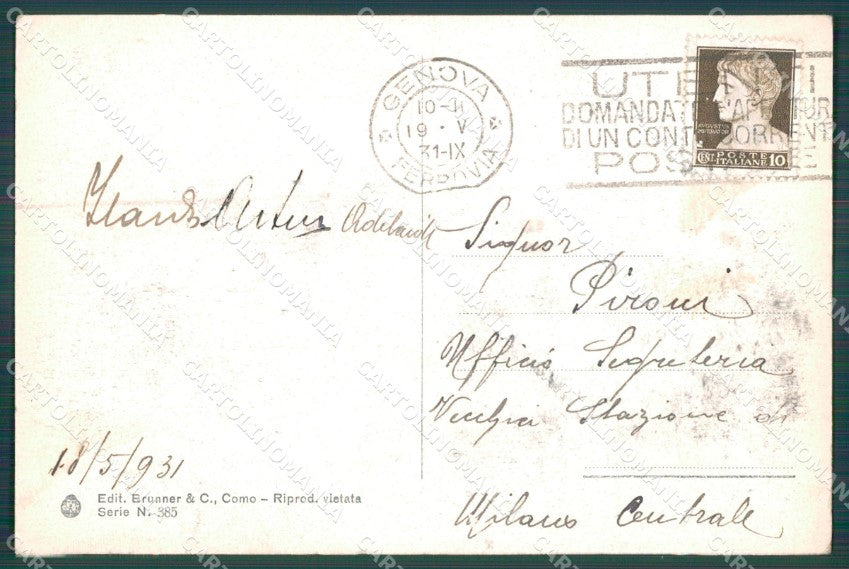 GENOVA
10-11
19 · V
31-IX
FERROVIA
UTENTI
DOMANDATE L'APERTURA
DI UN CONTO CORRENTE
POSTALE
POSTE
CENT. ITALIANE 10
Artur Adelaide
Signor
Pironi
Ufficio Segreteria
Vecchia Stazione di
Milano Centrale
18/5/931
Edit. Brunner & C., Como – Riprod. vietata
Serie N. 385
CARTOLINOMANIA